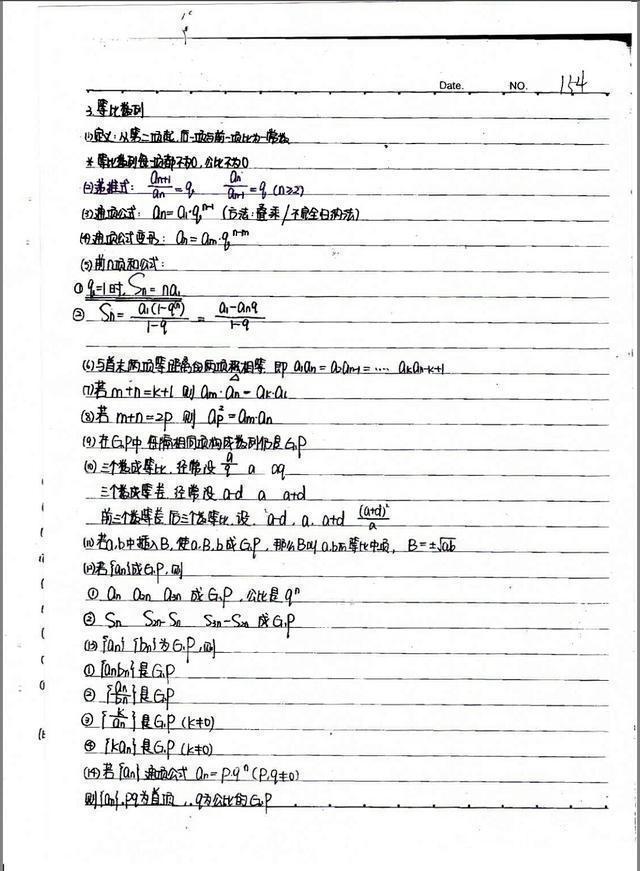 Date. NO. 154
3. 等比数列
(1)定义:从第二项起,后一项与前一项比为一常数
* 等比数列每一项都不为0,公比不为0
(2)递推式: a_{n+1}/a_n = q, a_n/a_{n-1} = q (n≥2)
(3)通项公式: a_n = a_1·q^{n-1} (方法:叠乘/不完全归纳法)
(4)通项公式变形: a_n = a_m·q^{n-m}
(5)前n项和公式:
① q=1时, S_n = na_1
② S_n = a_1(1-q^n)/1-q = a_1-a_nq/1-q
(6)与首末两项等距离的两项积相等 即 a_1a_n = a_2a_{n-1} = .... a_ka_{n-k+1}
(7)若 m+n=k+l 则 a_m·a_n = a_k·a_l
(8)若 m+n=2p 则 a_p^2 = a_m·a_n
(9)在G.P中 每隔相同项构成数列仍是G.P
(10)三个数成等比,经常设 a/q a aq
三个数成等差 经常设 a-d a a+d
前三个数等差 后三个数等比 设, a-d, a, a+d (a+d)^2/a
(11)若a,b中插入B,使a,B,b成G.P,那么B叫a,b的等比中项, B=±√ab
(12)若{a_n}成G.P,则
① a_n a_{2n} a_{3n} 成G.P,公比是q^n
② S_n S_{2n}-S_n S_{3n}-S_{2n} 成G.P
(13) {a_n} {b_n}为G.P,则
① {a_nb_n}是G.P
② {a_n/b_n}是G.P
③ {k/a_n}是G.P (k≠0)
④ {ka_n}是G.P (k≠0)
(14)若{a_n}通项公式 a_n=p·q^n (p,q≠0)
则{a_n},pq为首项,q为公比的G.P